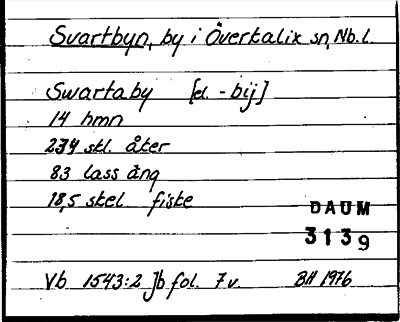 Svartbyn, by i Överkalix sn, Nb.l.
Swartaby [el. -bij]
14 hmn
234 skl. åker
83 lass äng
18,5 skel. fiske
DAUM
3139
Vb 1543:2 Jb fol. 7v. BH 1976